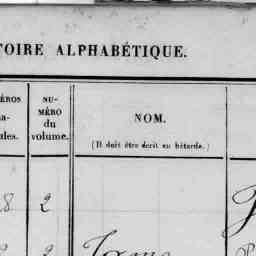 TOIRE ALPHABÉTIQUE.
ÉROS
a-
ules.
NU-
MÉRO
du
volume.
NOM.
(Il doit être écrit en bâtarde.)
8 2
2